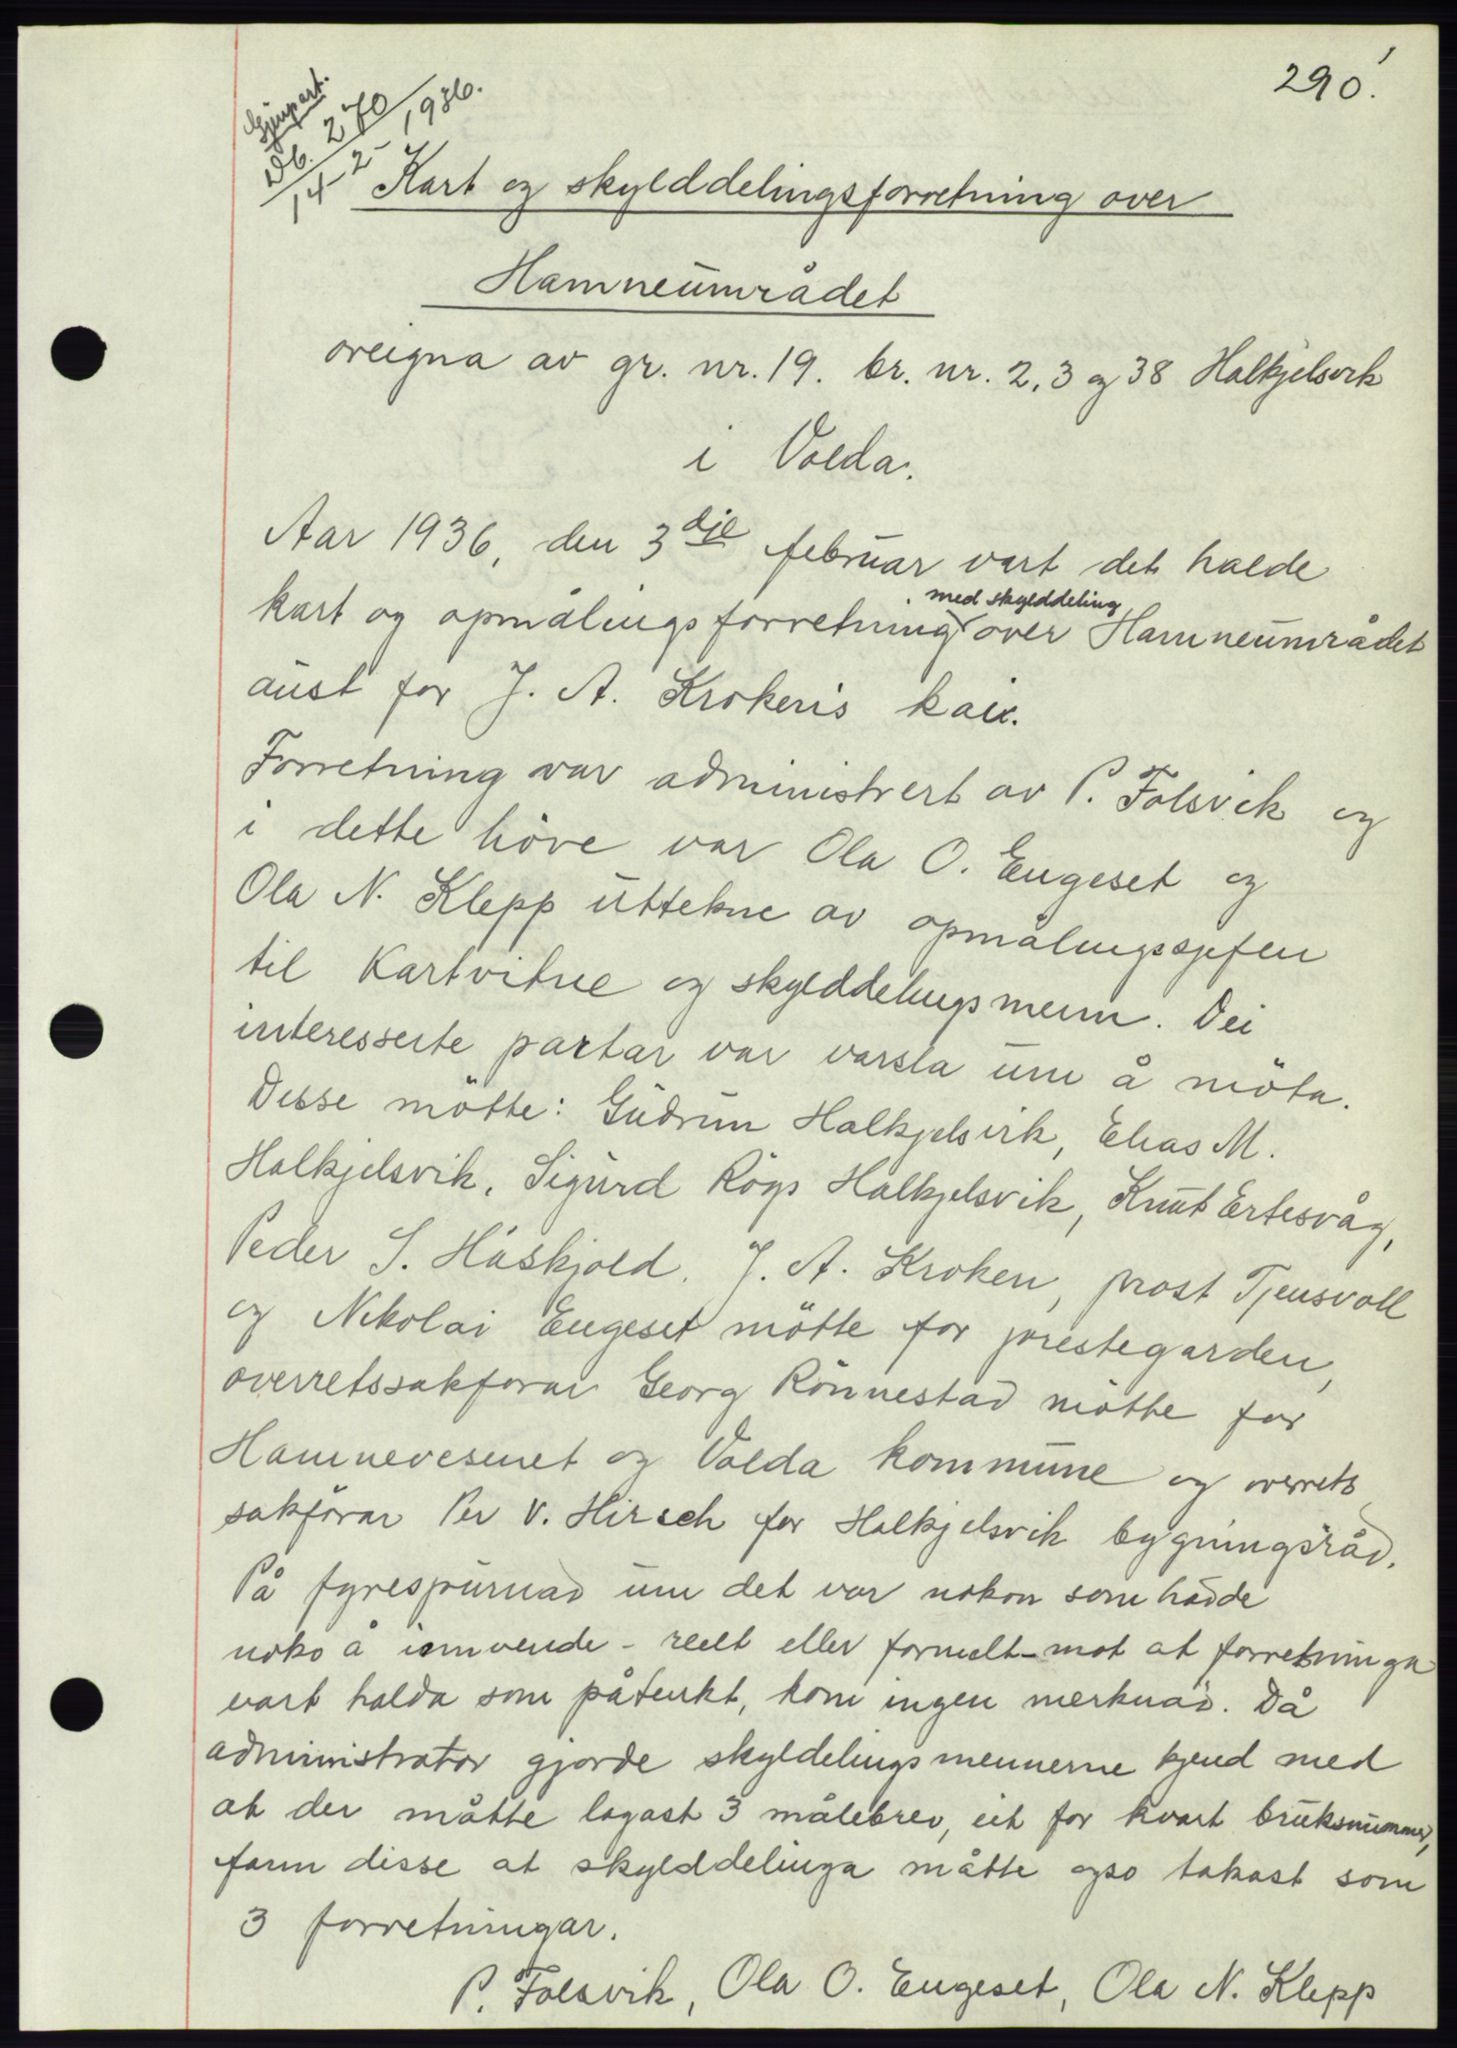 290.
Gjenpart.
Db. 270
14-2-1936.
Kart og skylddelingsforretning over
Hamneumrådet
oreigna av gr. nr. 19. br. nr. 2, 3 og 38 Halkjelsvik
i Volda.
Aar 1936, den 3dje februar vart det halde
med skylddeling
kart og opmålingsforretning over Hamneumrådet
aust for J. A. Kroken's kai.
Forretning var administrert av P. Folsvik og
i dette höve var Ola O. Engeset og
Ola N. Klepp uttekne av opmålingssjefen
til Kartvitne og skylddelingsmenn. Dei
interesserte partar var varsla um å möta.
Desse mötte: Gudrun Halkjelsvik, Elias M.
Halkjelsvik, Sigurd Rögs Halkjelsvik, Knut Ertesvåg,
Peder S. Håskjold, J. A. Kroken, prost Tjensvoll
og Nikolai Engeset mötte for prestegarden,
overretssakförar Georg Rönnestad mötte for
Hamnevesenet og Volda kommune og overrets
sakförar Per V. Hirsch for Halkjelsvik bygningsråd.
På fyrespurnad um det var nokon som hadde
noko å innvende - reelt eller formelt - mot at forretninga
vart halda som påtenkt, kom ingen merknad. Då
administrator gjorde skyldelingsmennerne kjend med
at der måtte lagast 3 målebrev, eit for kvart bruksnummer,
fann disse at skylddelinga måtte ogso takast som
3 forretningar.
P. Folsvik, Ola O. Engeset, Ola N. Klepp